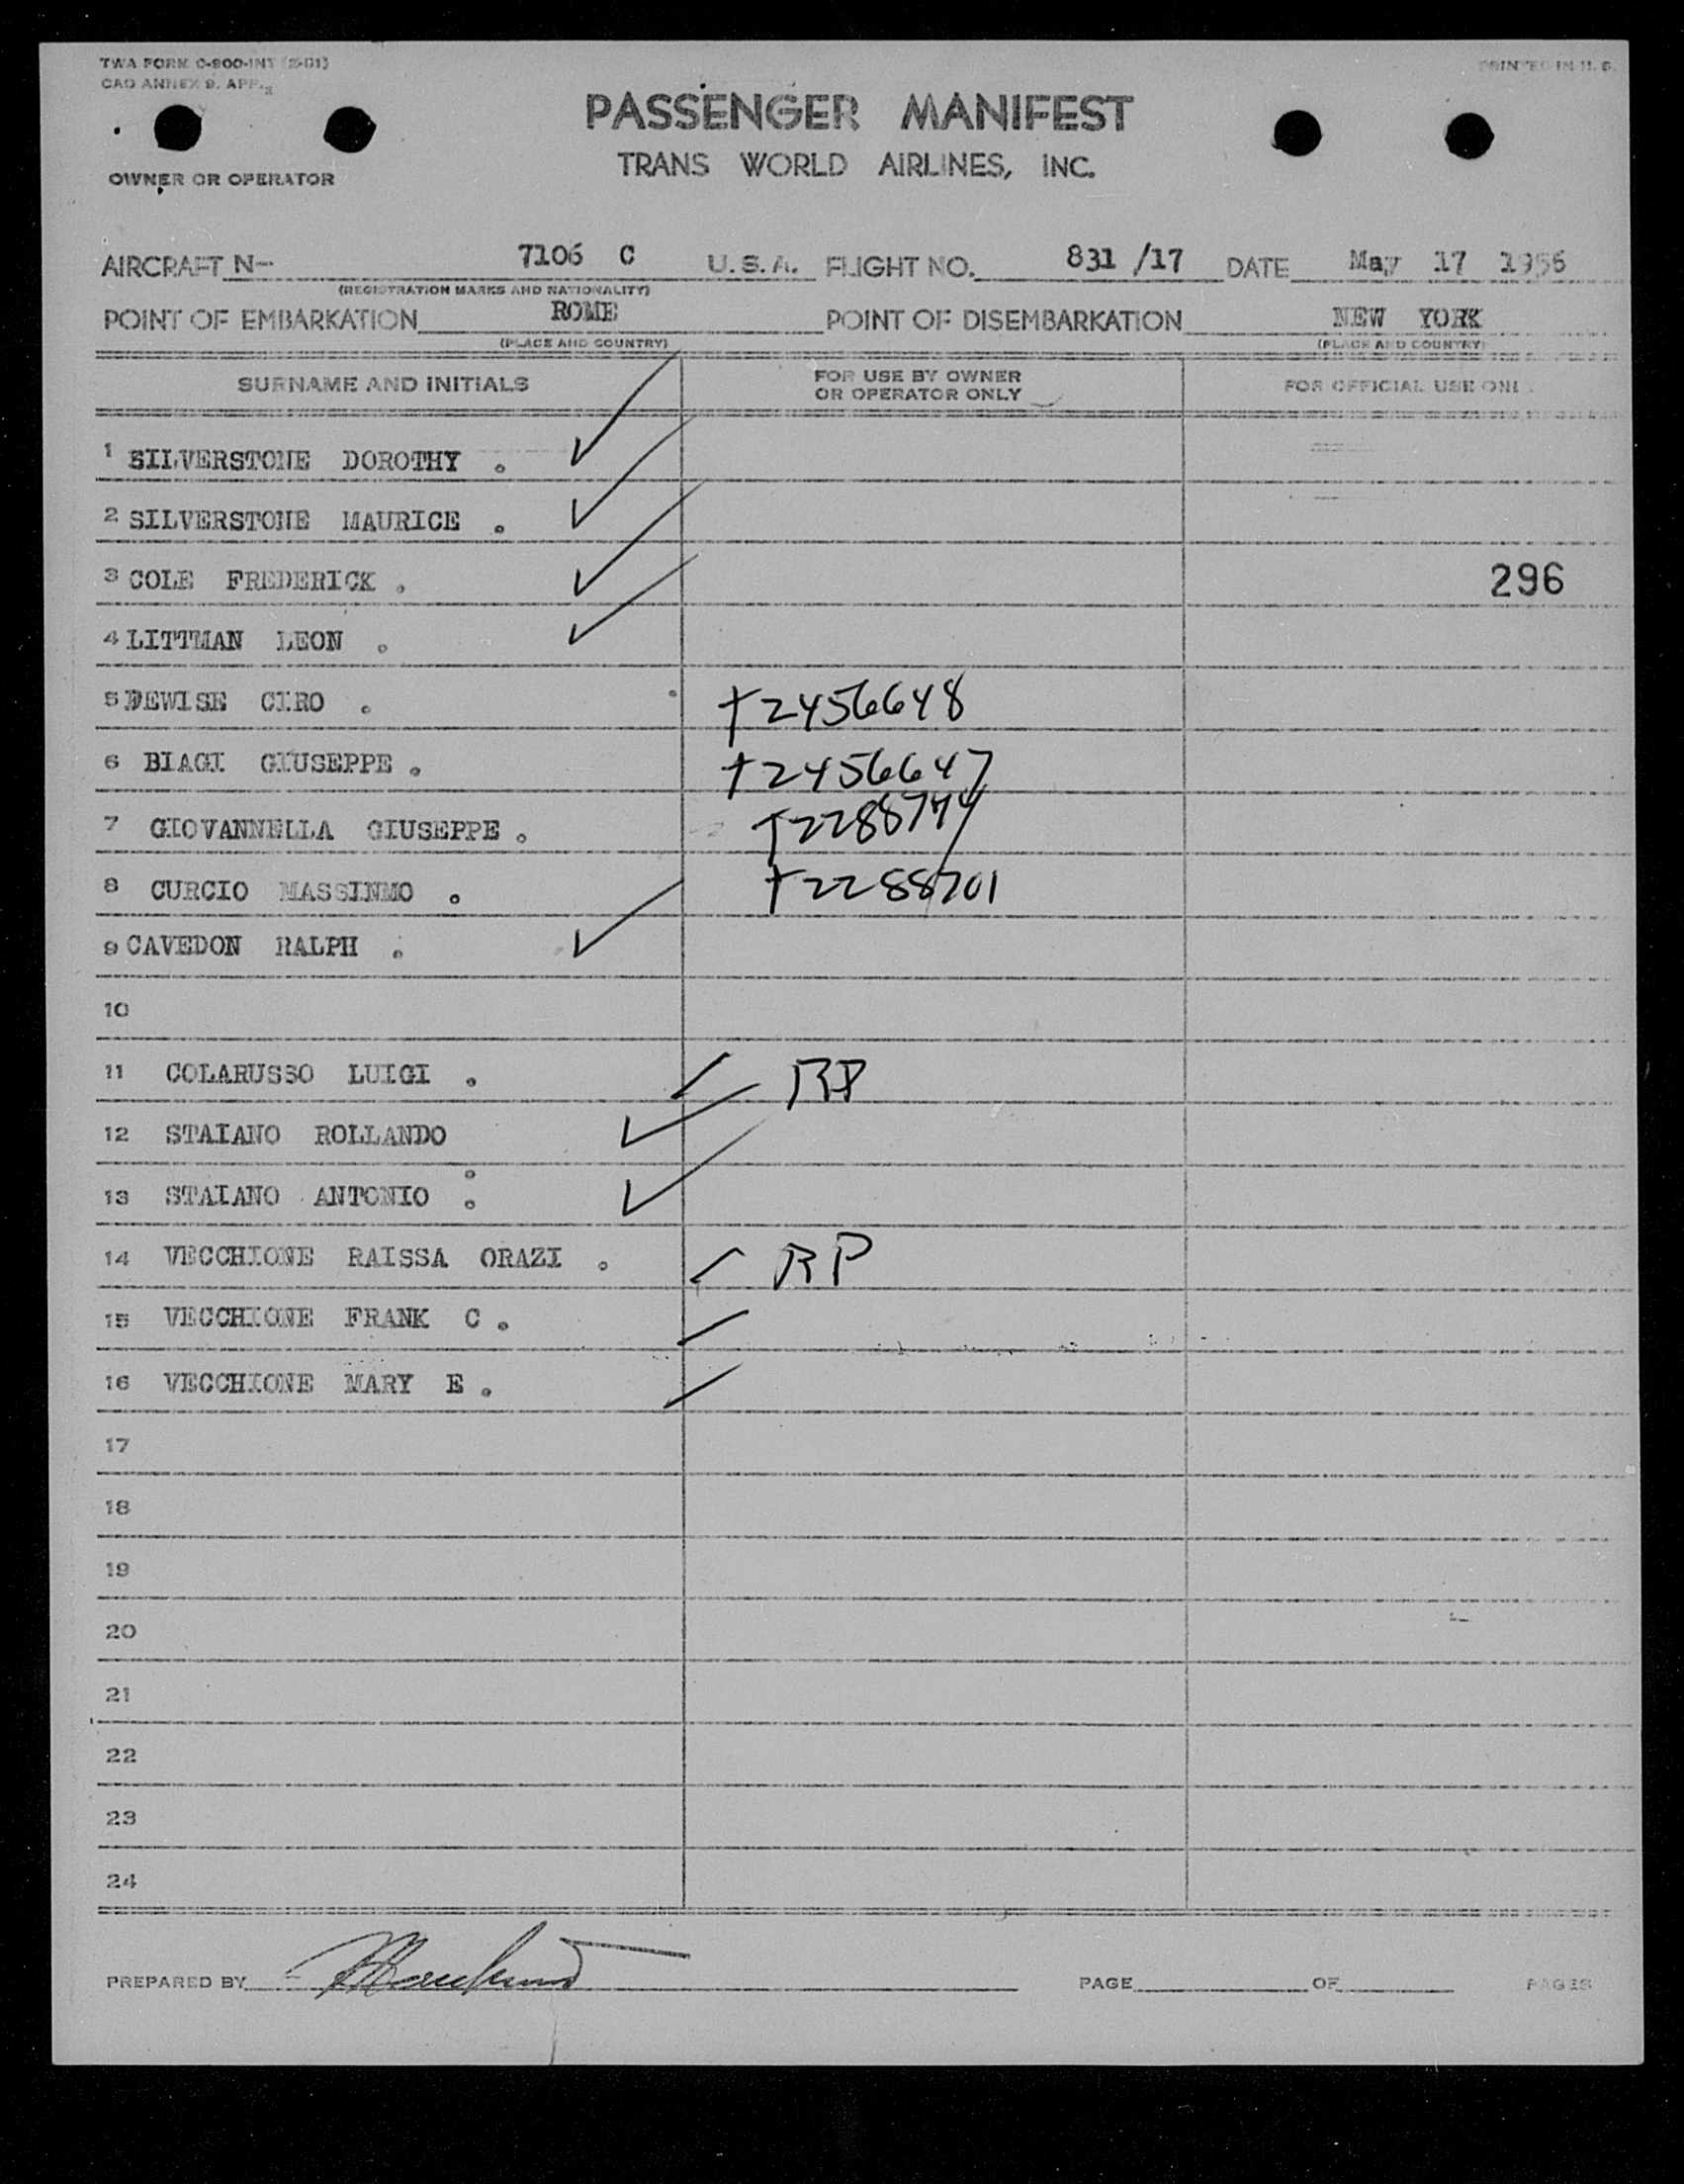 TWA FORM O-900-INT (2-51)
PRINTED IN U. S.
CAO ANNEX 9. APP.
PASSENGER MANIFEST
TRANS WORLD AIRLINES, INC.
OWNER OR OPERATOR
AIRCRAFT N- 7106 C U.S.A. FLIGHT NO. 831 /17 DATE May 17 1956
(REGISTRATION MARKS AND NATIONALITY)
POINT OF EMBARKATION ROME POINT OF DISEMBARKATION NEW YORK
(PLACE AND COUNTRY) (PLACE AND COUNTRY)
SURNAME AND INITIALS FOR USE BY OWNER OR OPERATOR ONLY FOR OFFICIAL USE ONL
1 SILVERSTONE DOROTHY .
2 SILVERSTONE MAURICE .
3 COLE FREDERICK . 296
4 LITTMAN LEON .
5 DEWISE CIRO . T2456648
6 BIAGI GIUSEPPE . T2456647
7 GIOVANNELLA GIUSEPPE .
8 CURCIO MASSINMO . T2288701
9 CAVEDON RALPH .
10
11 COLARUSSO LUIGI . RP
12 STAIANO ROLLANDO .
13 STAIANO ANTONIO .
14 VECCHIONE RAISSA ORAZI . RP
15 VECCHIONE FRANK C .
16 VECCHIONE MARY E .
17
18
19
20
21
22
23
24
PREPARED BY PAGE OF PAGES